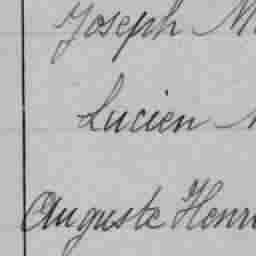 Joseph M
Lucien
Auguste Henri